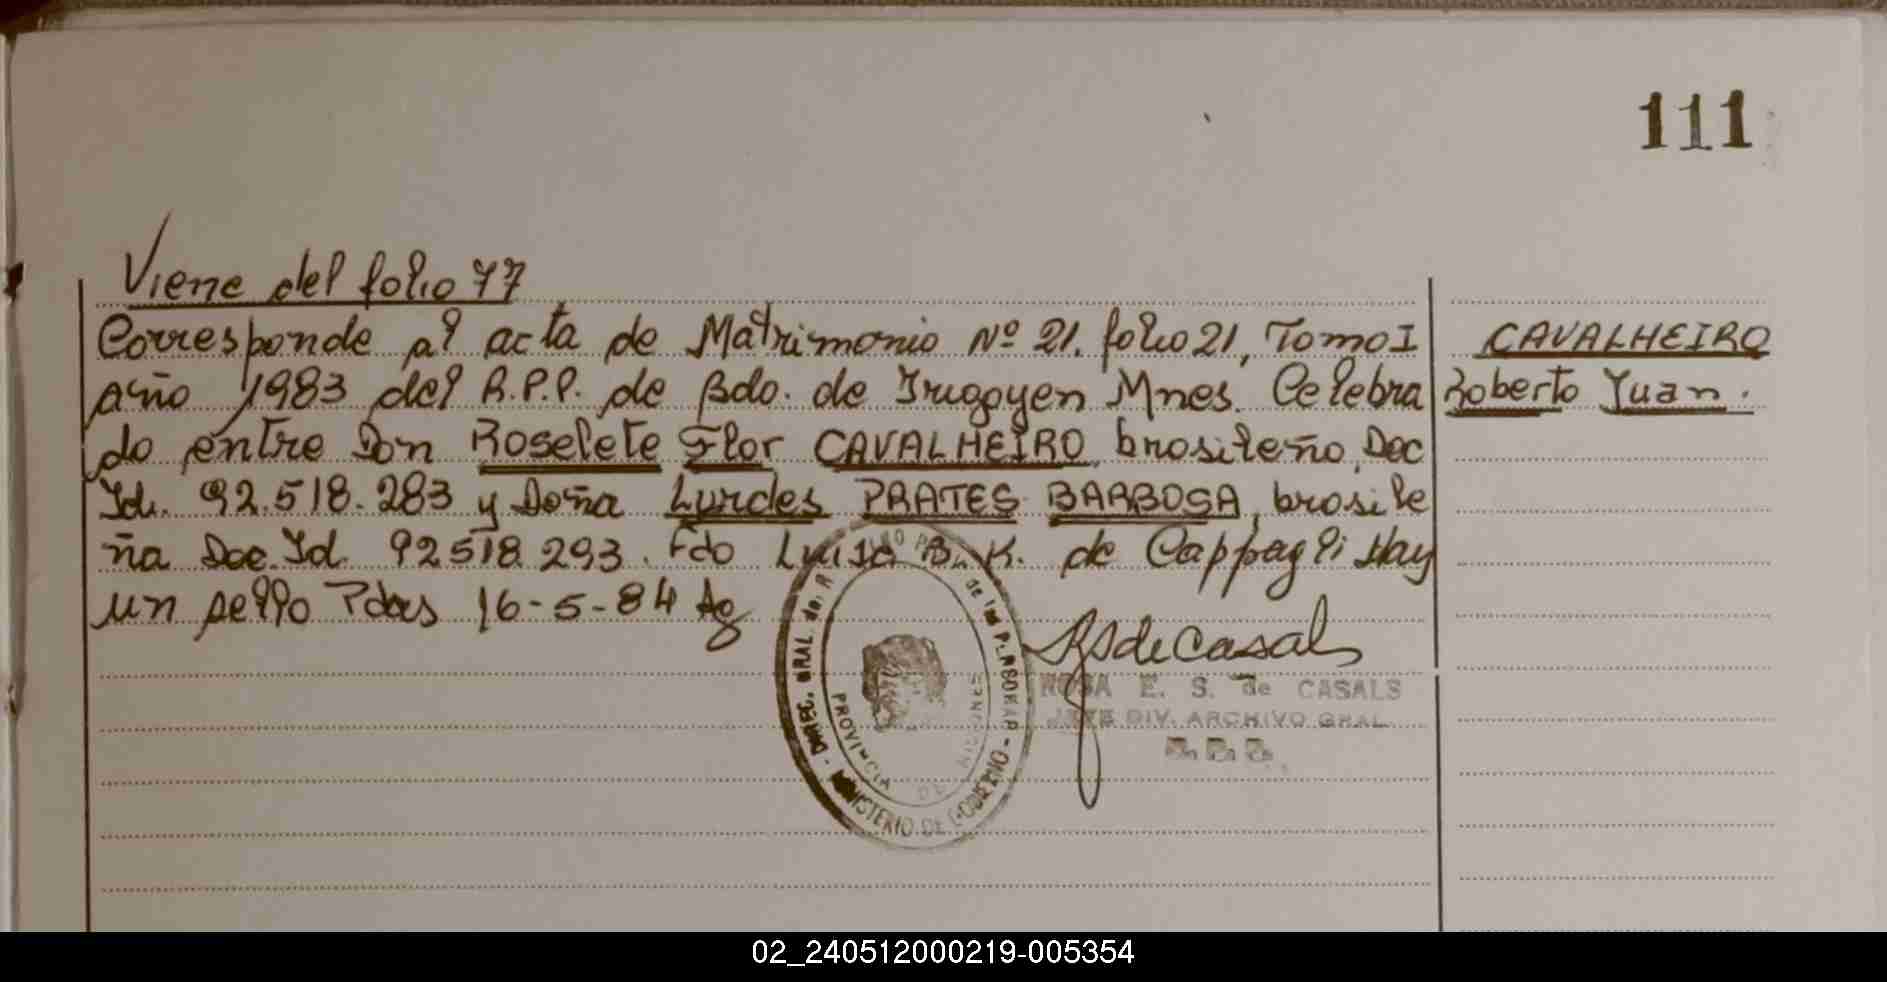 111
Viene del folio 77
Corresponde al acta de Matrimonio Nº 21. folio 21, Tomo I
año 1983 del R.P.P. de Bdo. de Irugoyen Mnes. Celebra
do entre Don Roselete Flor CAVALHEIRO, brasileño, Doc
Id. 92.518.283 y Doña Lurdes PRATES BARBOSA, brasile
ña Doc. Id. 92518293. Fdo Luisa B. K. de Cappagli Hay
un sello Pdas 16-5-84
CAVALHEIRO
Roberto Yuan.
RSdeCasals
ROSA E. S. de CASALS
JEFE DIV. ARCHIVO GRAL.
DIREC. GRAL. de
de las PERSONAS
MINISTERIO DE GOBIERNO
PROVINCIA DE MISIONES
02_240512000219-005354